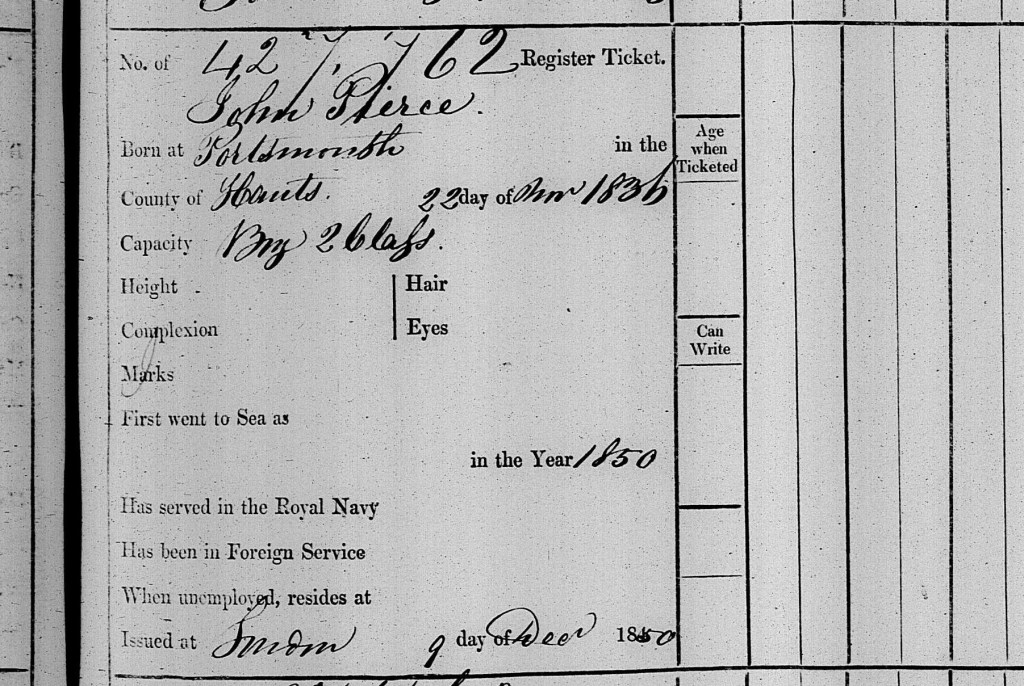 No. of 427,762 Register Ticket.
John Pierce.
Born at Portsmouth in the
County of Hants. 22 day of Nov 1836
Capacity Boy 2 Class.
Height Hair
Complexion Eyes
Marks
First went to Sea as
in the Year 1850
Has served in the Royal Navy
Has been in Foreign Service
When unemployed, resides at
Issued at London 9 day of Decr 1850
Age
when
Ticketed
Can
Write